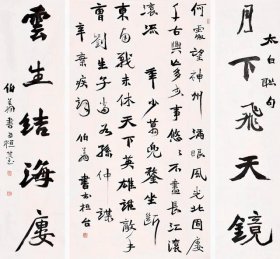 月下飛天鏡
太白
何處望神州滿眼風光北固廔
千古興亡多少事悠々不盡長江滾
滾流年少萬兜鍪坐斷
東南戰未休天下英雄誰敵手
曹劉生子當如孫仲謀
辛棄疾詞 書於桓台
雲生結海廔